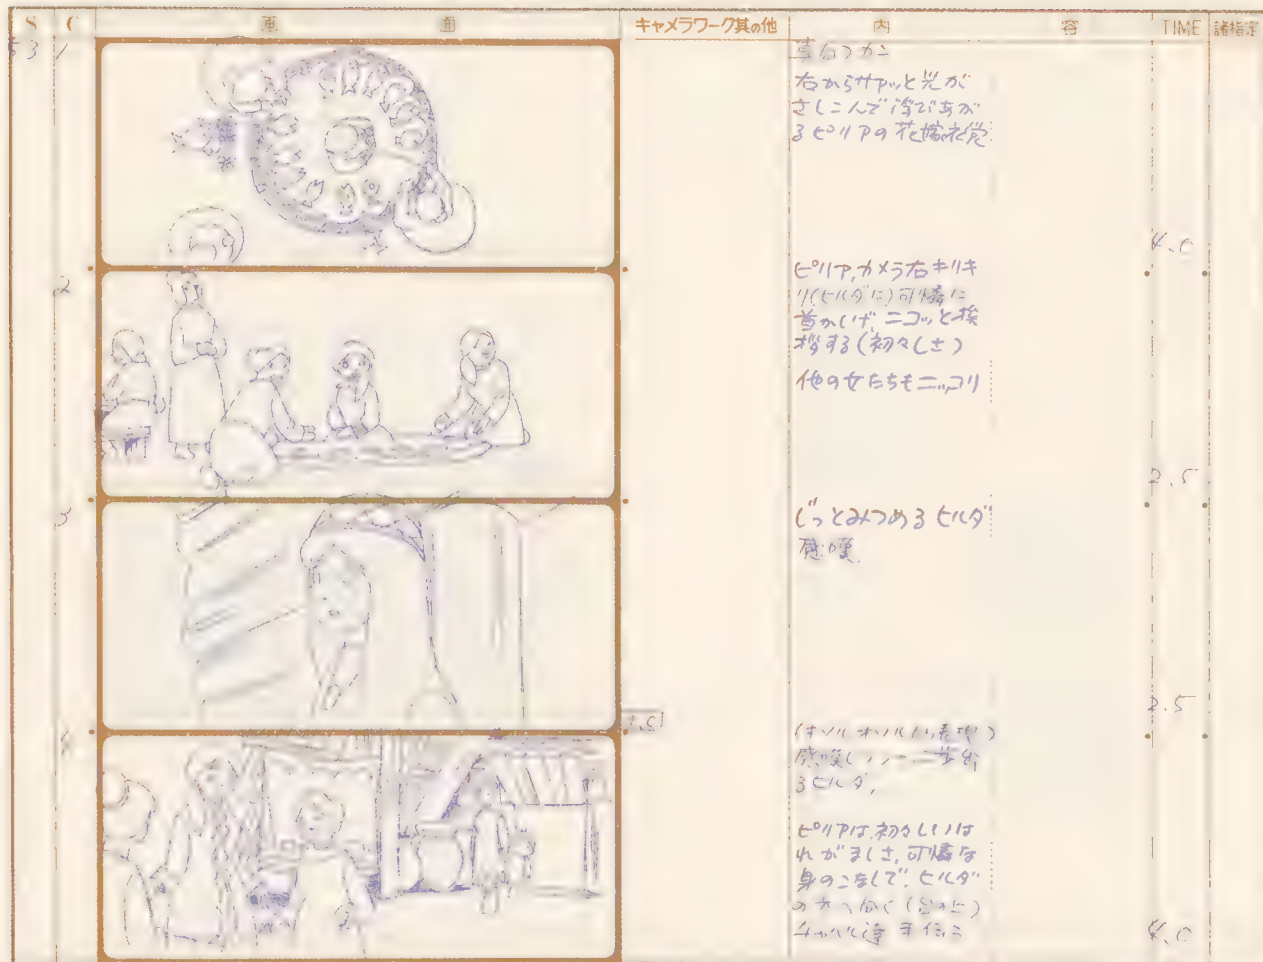 S C 画 面 キャメラワーク其の他 内 容 TIME 諸指定
53 1
真俯フカン
右からサァッと光が
さしこんで浮びあが
るピリアの花嫁衣裳
4.0
2
ピリア,カメラ右キリキ
リ(ヒルダに)可憐に
首かしげ、ニコッと挨
拶する(初々しさ)
他の女たちもニッコリ
2.5
3
じっとみつめるヒルダ
感嘆
2.5
4
感嘆しつつ一歩出
るヒルダ,
ピリアは,初々しいは
れがましさ,可憐な
身のこなしで,ヒルダ
の方へ向く
4.0